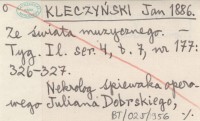 o KLECZYŃSKI Jan 1886.
Ze świata muzycznego. —
Tyg. Il. ser. 4, t. 7, nr 177:
326-327.
Nekrolog śpiewaka opero-
wego Juliana Dobrskiego,
BT/025/356 ·/·